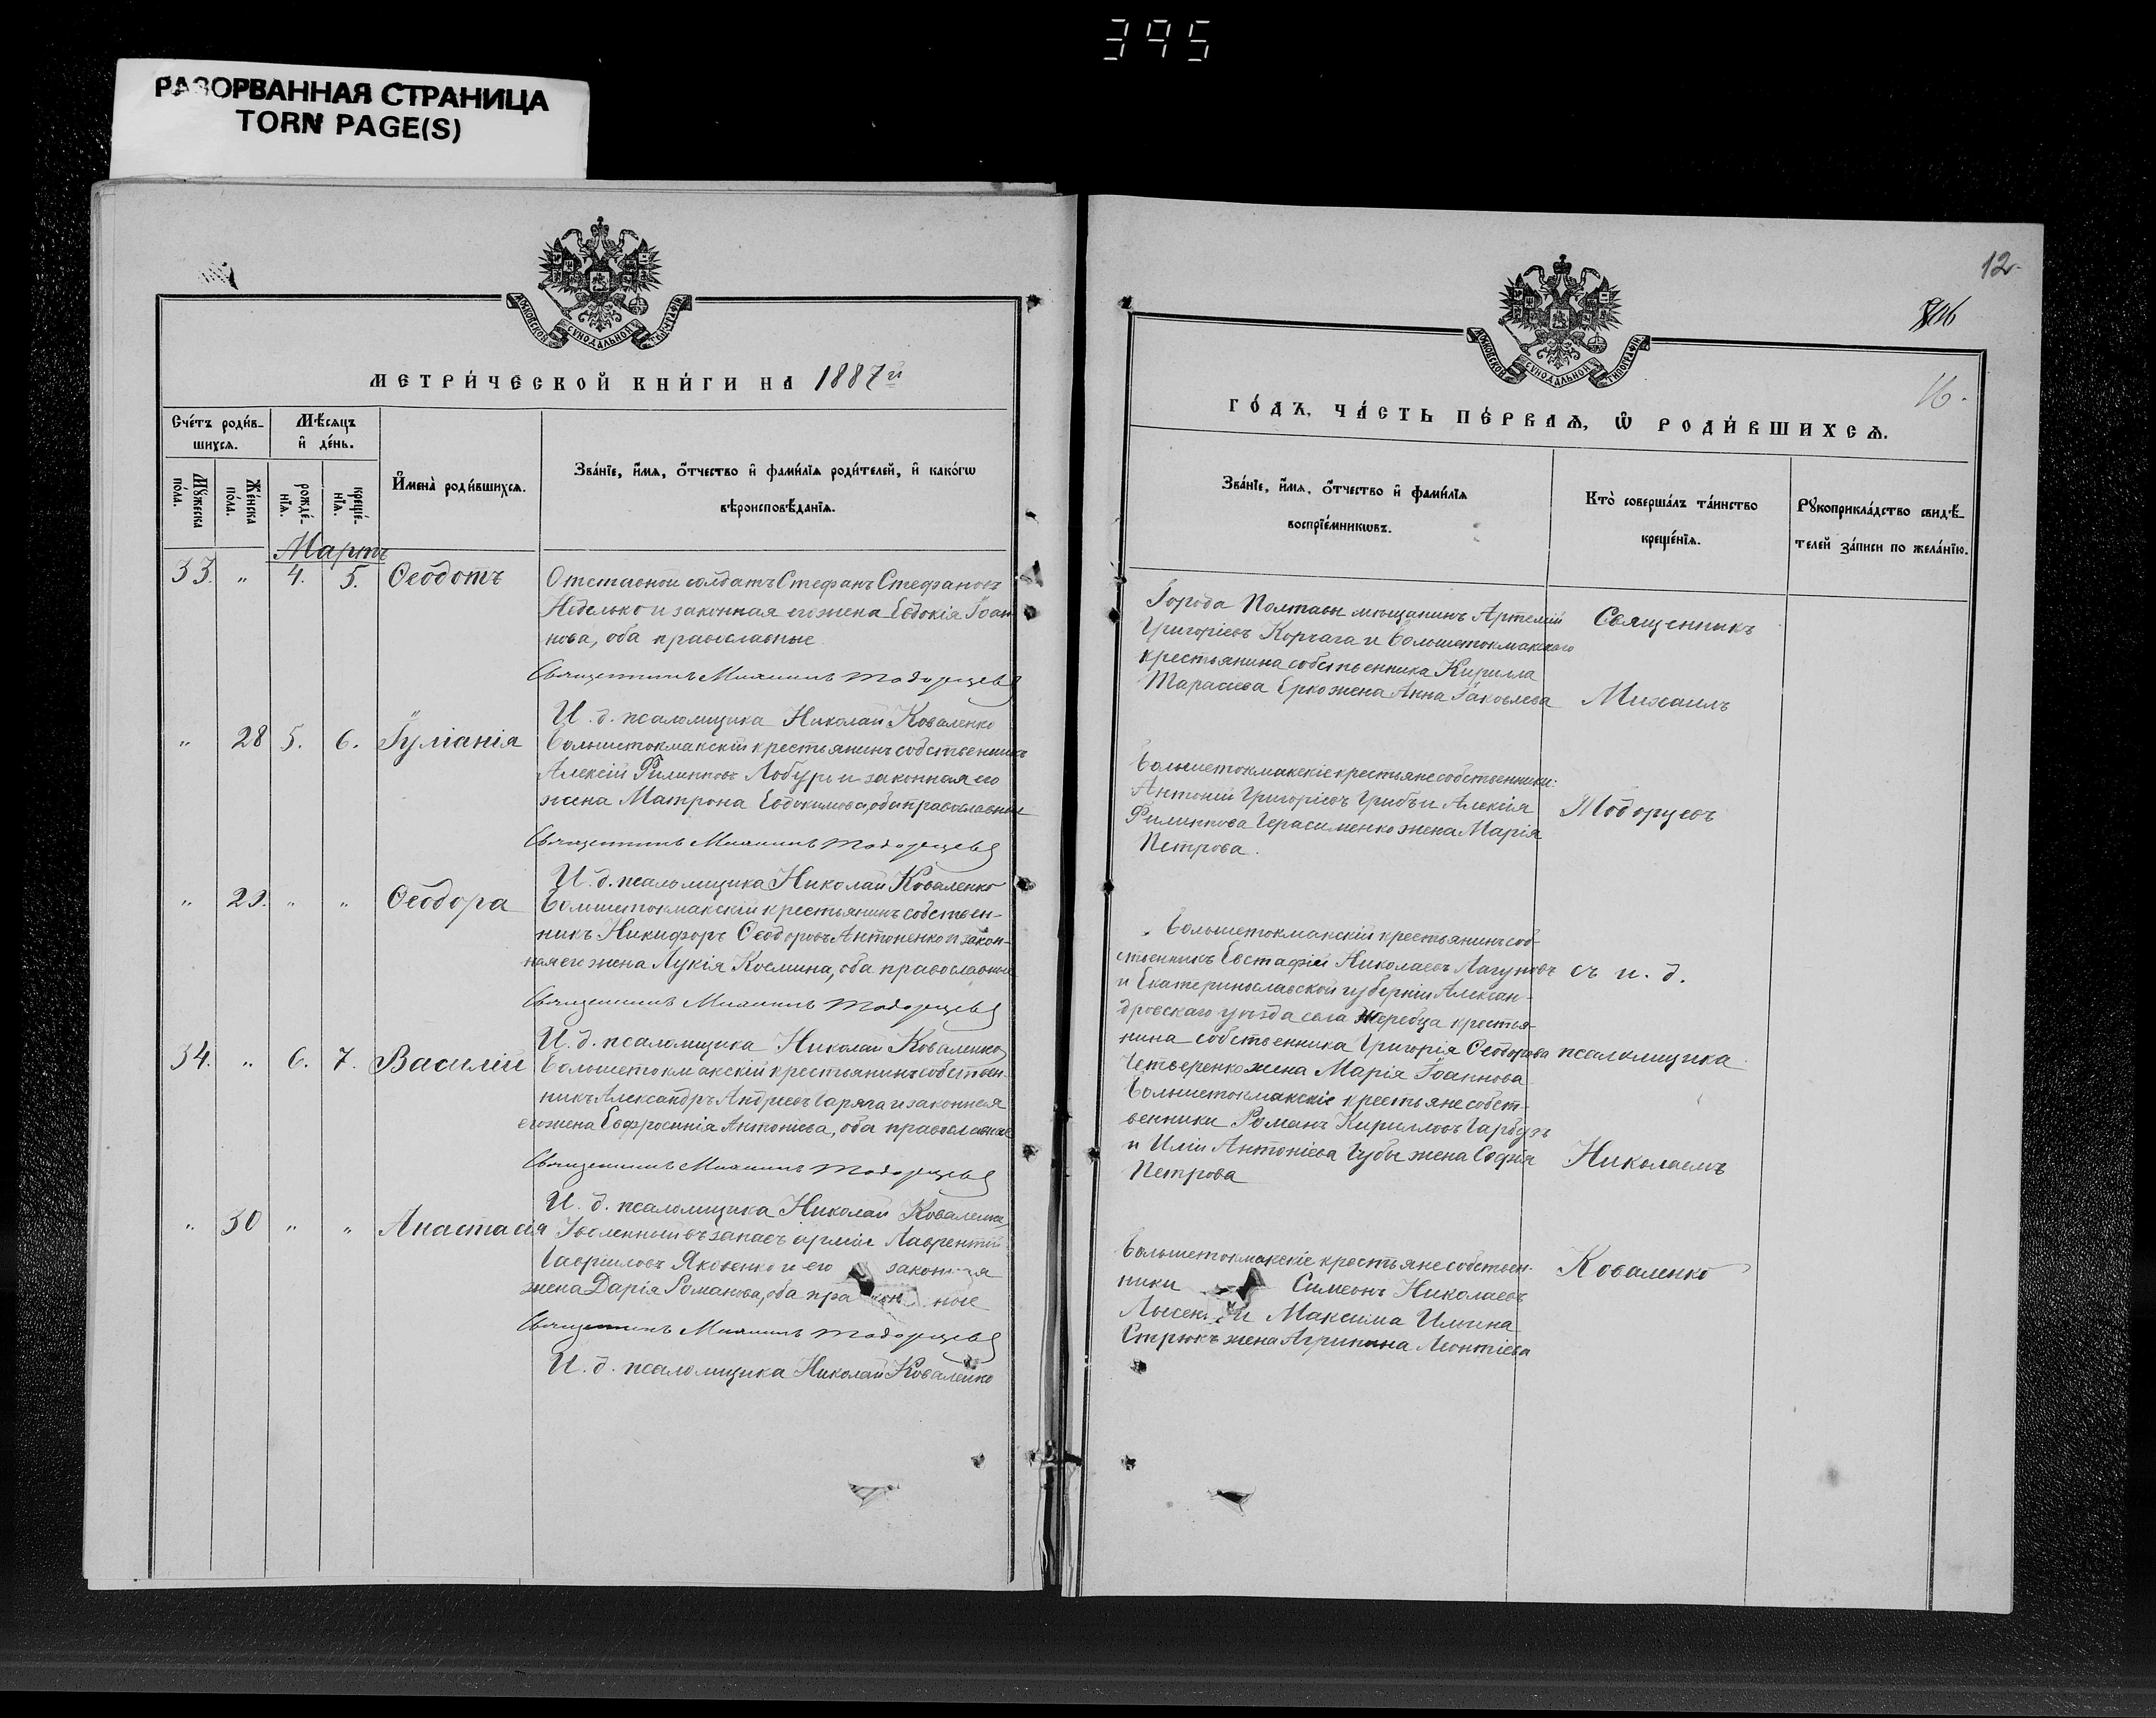 395
РАЗОРВАННАЯ СТРАНИЦА
TORN PAGE(S)
МОСКОВСКОЙ СУНОДАЛЬНОЙ ТУПОГРАФІИ
МЕТРИ́ЧЕСКОЙ КНИ́ГИ НА 1887й
Сче́тъ роди́в-
шихся.
Мѣ́сяцъ
и҆ де́нь.
Мꙋ́жеска
по́ла.
Же́нска
по́ла.
рожде́-
нїя.
креще́-
нїя.
И҆мена̀ роди́вшихся.
Зва́нїе, и҆́мя, ѻ҆́тчество и҆ фами́лїя роди́телей, и҆ како́гѡ
вѣроисповѣ́данїя.
Мартъ
33. " 4. 5. Ѳеодотъ
Отставной солдатъ Стефанъ Стефановъ
Неделько и законная его жена Евдокія Іоан
нова, оба православные.
Священникъ Михаилъ Тодорцевъ
И. д. псаломщика Николай Коваленко
" 28 5. 6. Іуліанія
Большетокмакскій крестьянинъ собственникъ
Алексій Филипповъ Лобуръ и законная его
жена Матрона Евдокимова, оба православные
Священникъ Михаилъ Тодорцевъ
И. д. псаломщика Николай Коваленко
" 29. " " Ѳеодора
Большетокмакскій крестьянинъ собствен-
никъ Никифоръ Ѳеодоровъ Антоненко и закон-
ная его жена Лукія Космина, оба православные
Священникъ Михаилъ Тодорцевъ
И. д. псаломщика Николай Коваленко
34. " 6. 7. Василій
Большетокмакскій крестьянинъ собствен-
никъ Александръ Андреевъ Гаряга и законная
его жена Евфросинія Антоніева, оба православные
Священникъ Михаилъ Тодорцевъ
И. д. псаломщика Николай Коваленко
" 30 " " Анастасія
Уволенный въ запасъ арміи Лаврентій
Гавриловъ Яковенко и его законная
жена Дарія Романова, оба пра ные
Священникъ Михаилъ Тодорцевъ
И. д. псаломщика Николай Коваленко
12.
16.
МОСКОВСКОЙ СУНОДАЛЬНОЙ ТУПОГРАФІИ
ГО́ДЪ, ЧА́СТЬ ПЕ́РВАѦ, Ѽ РОДИ́ВШИХСѦ.
Зва́нїе, и҆́мя, ѻ҆́тчество и҆ фами́лїя
воспрїе́мникѡвъ.
Кто̀ соверша́лъ та́инство
креще́нїя.
Рꙋкоприкла́дство свидѣ́-
телей за́писи по жела́нїю.
Города Полтавы мѣщанинъ Артемій
Григоріевъ Корчага и Большетокмакскаго
крестьянина собственника Кирилла
Тарасіева Ерко жена Анна Іаковлева
Большетокмакскіе крестьяне собственники:
Антоній Григоріевъ Грибъ и Алексія
Филиппова Герасименко жена Марія
Петрова.
Большетокмакскій крестьянинъ соб-
ственникъ Евстафій Николаевъ Лагуновъ
и Екатеринославской губерніи Алексан-
дровскаго уѣзда села Жеребца крестья-
нина собственника Григорія Ѳеодорова
Четверенко жена Марія Іоаннова
Большетокмакскіе крестьяне собст-
венники Романъ Кирилловъ Гарбузъ
и Иліи Антоніева Губы жена Софія
Петрова
Большетокмакскіе крестьяне собствен-
ники Симеонъ Николаевъ
Лысен и Максима Ильина
Стрюкъ жена Агрипина Леонтіева
Священникъ
Михаилъ
Тодорцевъ
съ и. д.
псаломщика
Николаемъ
Коваленко